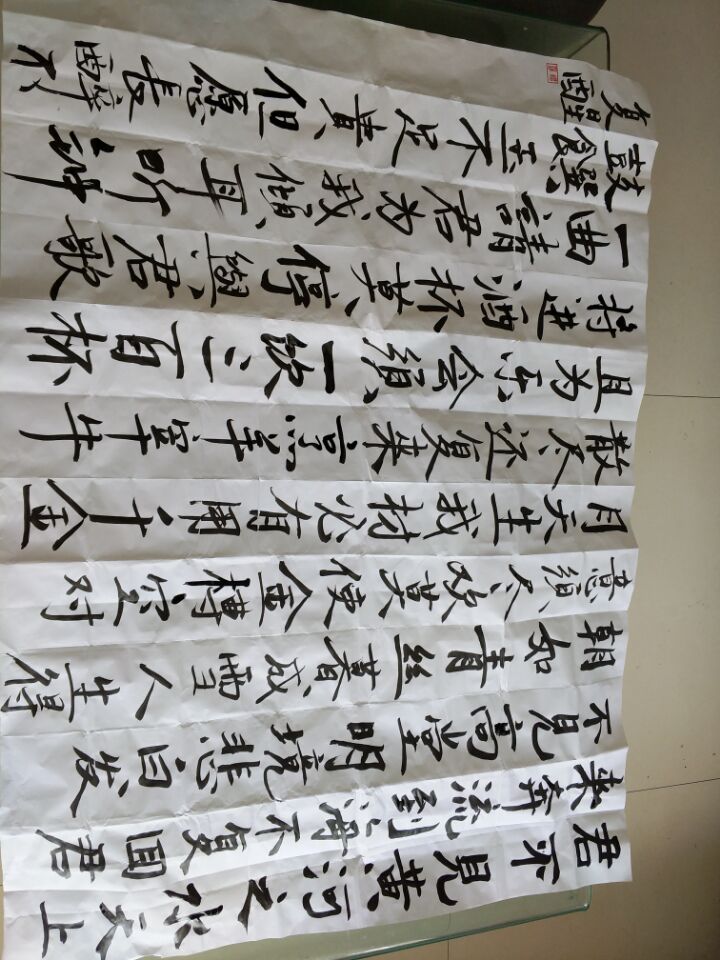 君不见黄河之水天上
来奔流到海不复回君
不见高堂明境悲白发
朝如青丝暮成雪人生得
意须尽欢莫使金樽空对
月天生我材必有用千金
散尽还复来烹羊宰牛
且为乐会须一饮三百杯
将进酒杯莫停與君歌
一曲請君为我傾耳听钟
鼓饌玉不足貴但愿長醉不
复醒